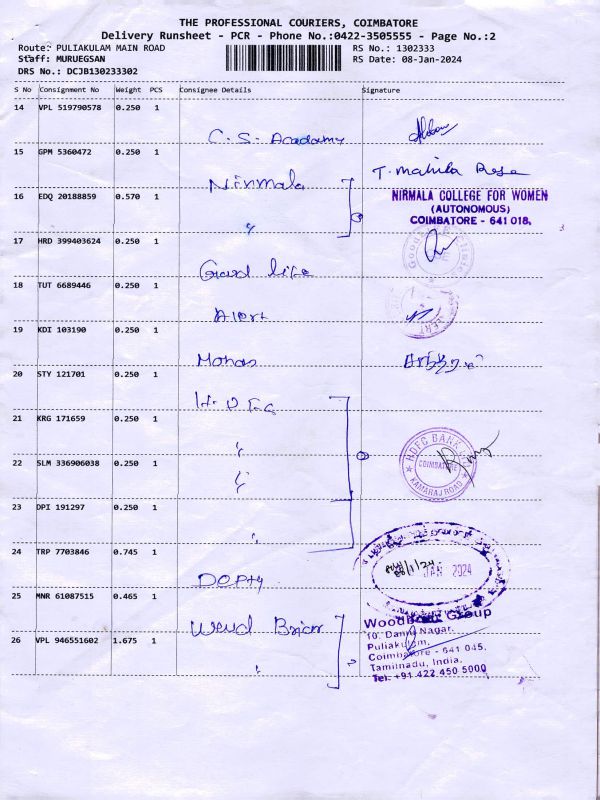 THE PROFESSIONAL COURIERS, COIMBATORE
Delivery Runsheet - PCR - Phone No.:0422-3505555 - Page No.:2
Route: PULIAKULAM MAIN ROAD RS No.: 1302333
Staff: MURUEGSAN RS Date: 08-Jan-2024
DRS No.: DCJB130233302
S No Consignment No Weight PCS Consignee Details Signature
14 VPL 519790578 0.250 1
C.S. Academy
15 GPM 5360472 0.250 1
Nirmala T. Mahila
16 EDQ 20188859 0.570 1
NIRMALA COLLEGE FOR WOMEN
(AUTONOMOUS)
COIMBATORE - 641 018.
17 HRD 399403624 0.250 1
life
18 TUT 6689446 0.250 1
Alert
19 KDI 103190 0.250 1
Mohan
20 STY 121701 0.250 1
21 KRG 171659 0.250 1
22 SLM 336906038 0.250 1
HDFC BANK LTD
COIMBATORE
KAMARAJ ROAD
23 DPI 191297 0.250 1
24 TRP 7703846 0.745 1
JAN 2024
08/1/24
25 MNR 61087515 0.465 1
Woodbriar Group
10, Damu Nagar,
Puliakulam,
26 VPL 946551602 1.675 1
Coimbatore - 641 045,
Tamilnadu, India.
Tel: +91 422 450 5000